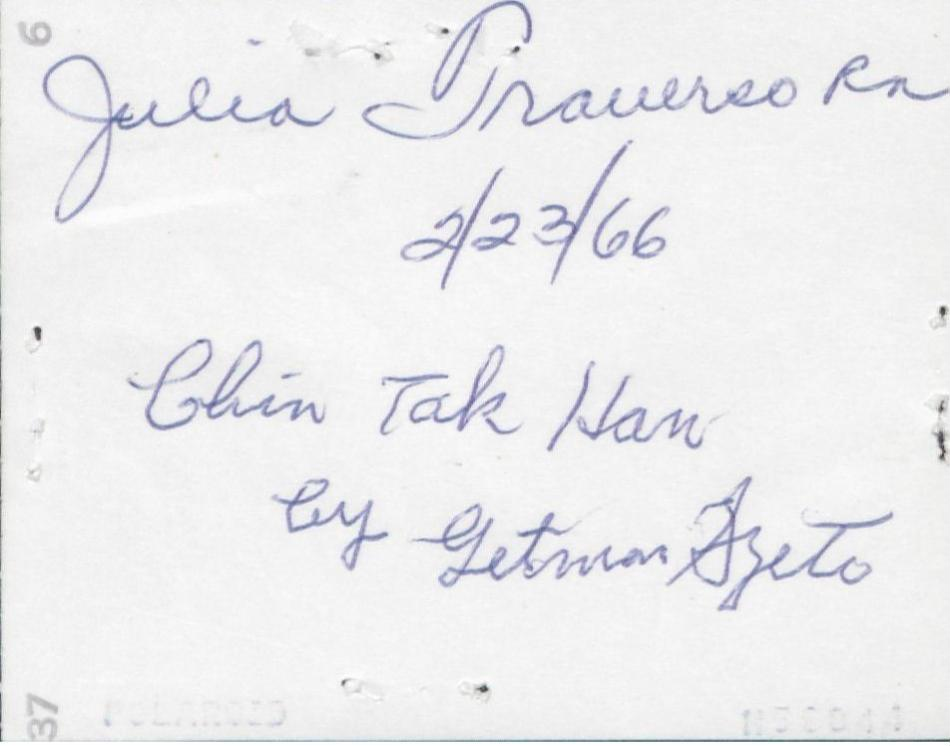 6
Julia Traverso RN
2/23/66
Chin Tak Han
by Getman Szeto
37
POLAROID